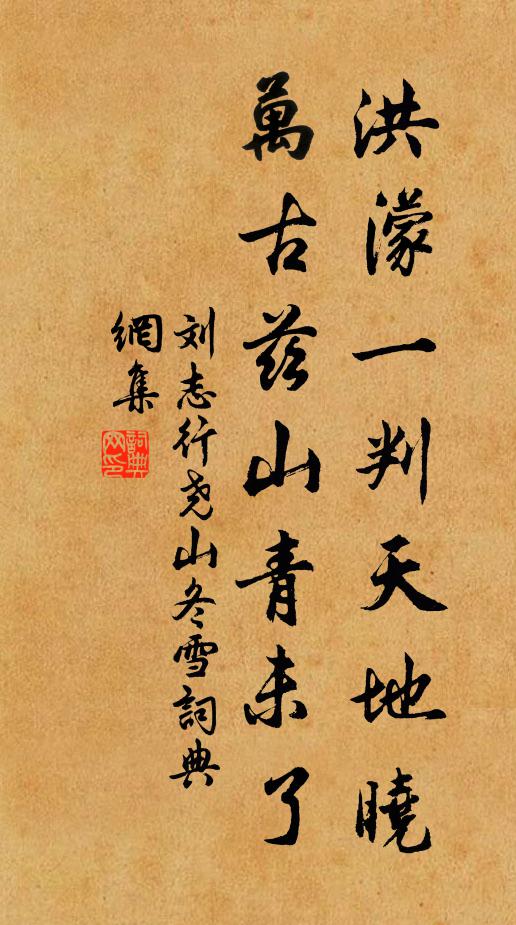 洪濛一判天地曉
萬古茲山青未了
刘志行尧山冬雪詞典
網集
詞典
网印